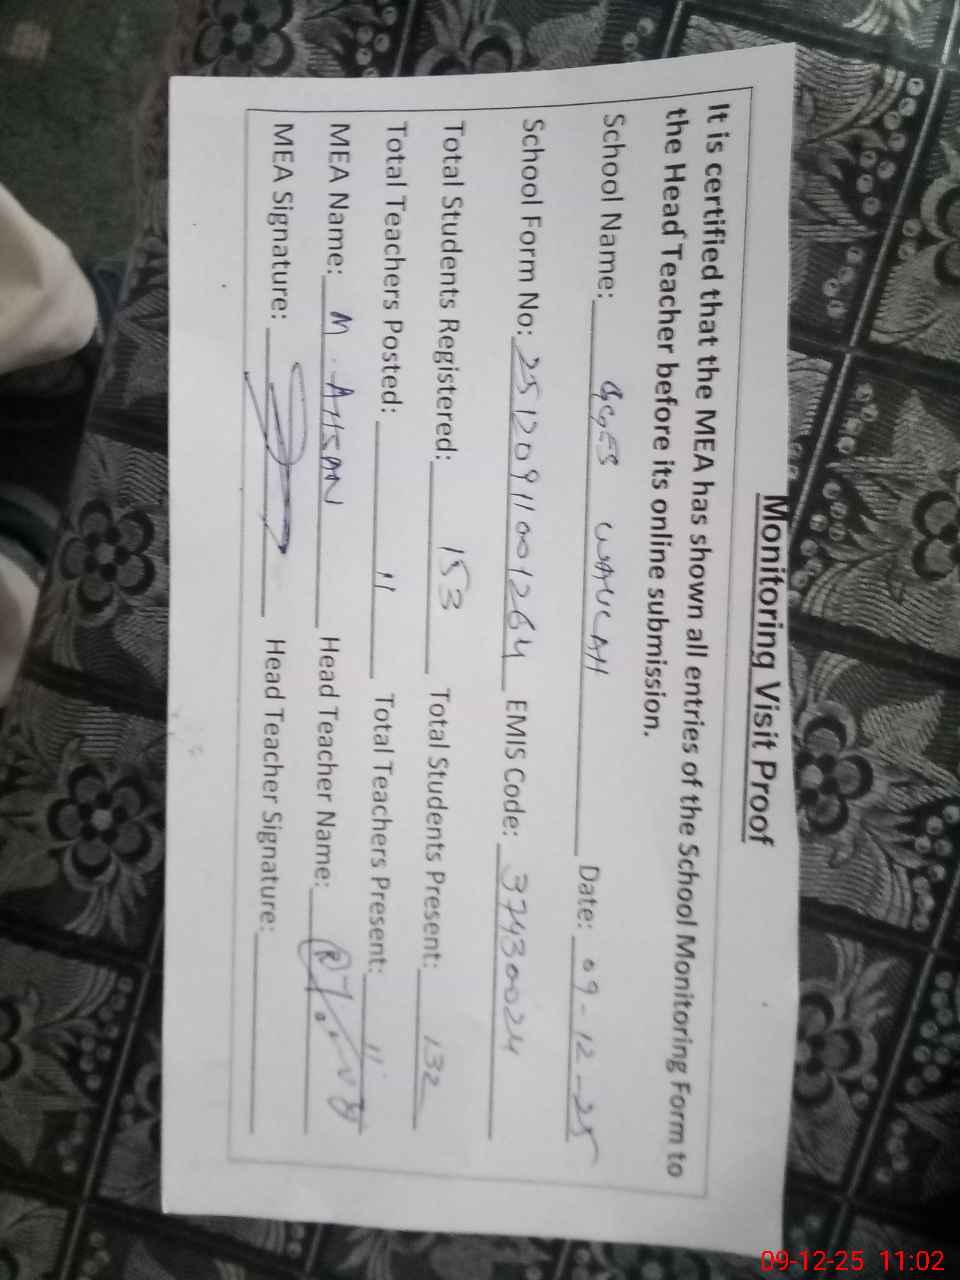 Monitoring Visit Proof
It is certified that the MEA has shown all entries of the School Monitoring Form to
the Head Teacher before its online submission.
School Name: GGES WAUCAH Date: 09-12-25
School Form No: 25120911001264 EMIS Code: 37430024
Total Students Registered: 153 Total Students Present: 132
Total Teachers Posted: 11 Total Teachers Present: 11
MEA Name: M. AHSAN Head Teacher Name:
MEA Signature: Head Teacher Signature:
09-12-25 11:02